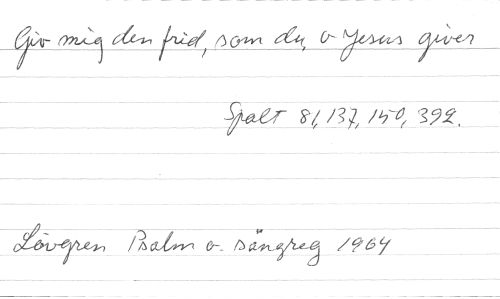 Giv mig den frid, som du, o Jesus giver
Spalt 81, 137, 150, 392.
Lövgren Psalm o. sångreg 1964